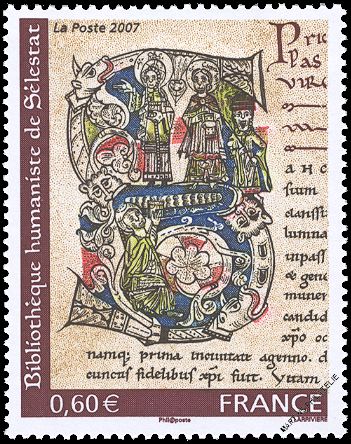 La Poste 2007
Bibliothèque humaniste de Sélestat
Pric
pas
viro
a h c
sium
clarissi
lumina
inpass
& gene
muner
candid
xp̄o oc
namq; prima incuitate agenno. d
cunctis fidelibus xp̄i fuit. Vitam
0,60 €
FRANCE
Phil@poste